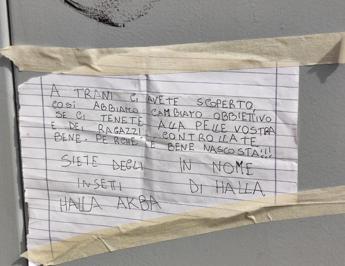 A TRANI CI AVETE SCOPERTO,
COSÌ ABBIAMO CAMBIATO OBBIETTIVO
SE CI TENETE ALLA PELLE VOSTRA
E DEI RAGAZZI CONTROLLATE
BENE. PERCHÈ È BENE NASCOSTA!!!
SIETE DEGLI IN NOME
INSETI DI HALLA
HALLA AKBA